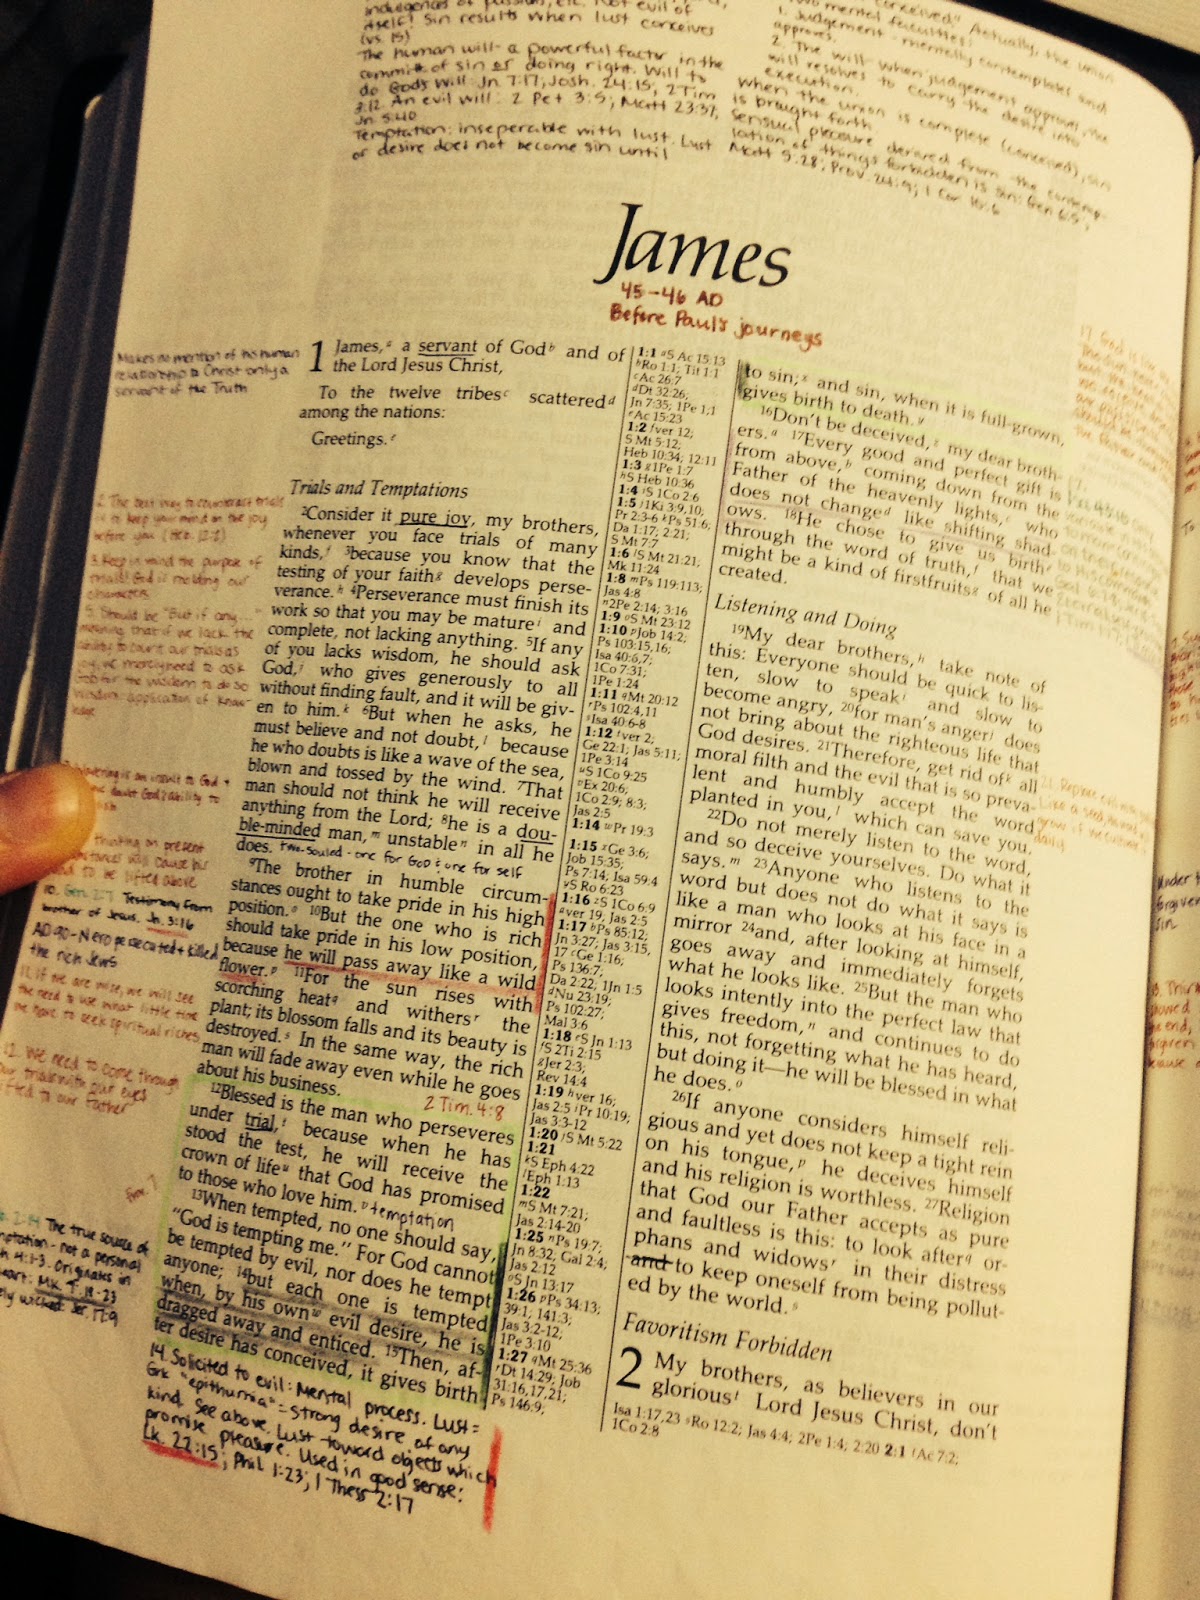 itself! Sin results when lust conceives
(vs. 15)
The human will - a powerful factor in the
commit of sin or doing right. Will to
do God's Will: Jn 7:17; Josh. 24:15; 2 Tim
3:12. An evil will: 2 Pet 3:5; Matt 23:37;
Jn 5:40
Temptation: inseperable with lust. Lust
or desire does not become sin until
conceived." Actually, the union
two mental faculties:
1. Judgement - mentally contemplates and
approves.
2. The will - when judgement approves, the
will resolves to carry the desire into
execution.
When the union is complete (conceived), sin
is brought forth
Sensual pleasure derived from the contemp-
lation of things forbidden is sin: Gen 6:5;
Matt 5:28; Prov. 24:9; 1 Cor 10:6
James
45-46 AD
Before Paul's journeys
Makes no mention of his human
relationship to Christ only a
servant of the Truth
1 James, a a servant of God b and of
the Lord Jesus Christ,
To the twelve tribes c scattered d
among the nations:
Greetings. e
Trials and Temptations
2Consider it pure joy, my brothers,
whenever you face trials of many
kinds, f 3because you know that the
testing of your faith g develops perse-
verance. h 4Perseverance must finish its
work so that you may be mature i and
complete, not lacking anything. 5If any
of you lacks wisdom, he should ask
God, j who gives generously to all
without finding fault, and it will be giv-
en to him. k 6But when he asks, he
must believe and not doubt, l because
he who doubts is like a wave of the sea,
blown and tossed by the wind. 7That
man should not think he will receive
anything from the Lord; 8he is a dou-
ble-minded man, m unstable n in all he
does. two-souled - one for God & one for self
9The brother in humble circum-
stances ought to take pride in his high
position. o 10But the one who is rich
should take pride in his low position,
because he will pass away like a wild
flower. p 11For the sun rises with
scorching heat q and withers r the
plant; its blossom falls and its beauty is
destroyed. s In the same way, the rich
man will fade away even while he goes
about his business.
2 Tim. 4:8
12Blessed is the man who perseveres
under trial, t because when he has
stood the test, he will receive the
crown of life u that God has promised
to those who love him. v temptation
13When tempted, no one should say,
"God is tempting me." For God cannot
be tempted by evil, nor does he tempt
anyone; 14but each one is tempted
when, by his own w evil desire, he is
dragged away and enticed. 15Then, af-
ter desire has conceived, it gives birth
14. Solicited to evil: Mental process. Lust =
Grk "epithumia" = strong desire of any
kind. See above. Lust toward objects which
promise pleasure. Used in good sense:
Lk. 22:15; Phil 1:23; 1 Thess 2:17
2. The best way to counteract trials
is to keep your mind on the joy
before you (Heb. 12:2)
3. Keep in mind the purpose of
trials! God is molding our
character
5. Should be "But if any...
meaning that if we lack the
ability to count our trials as
joy, we merely need to ask
God for the wisdom to do so
Wisdom: application of know-
ledge
Wavering is an insult to God +
doubt God's ability to
thinking on present
will cause his
to be lifted above
10. Gen. 2:7 Testimony from
brother of Jesus. Jn. 3:16
AD 90 - Nero persecuted + killed
the rich Jews
11. If we are wise, we will see
the need to use what little time
we have to seek spiritual riches
12. We need to come through
our trials with our eyes
lifted to our Father
2:14 The true source of
temptation - not a personal
4:1-3. Originates in
heart: Mk 7:18-23
wicked: Jer. 17:9
1:1 a S Ac 15:13
b Ro 1:1; Tit 1:1
c Ac 26:7
d Dt 32:26;
Jn 7:35; 1Pe 1:1
e Ac 15:23
1:2 f ver 12;
S Mt 5:12;
Heb 10:34; 12:11
1:3 g 1Pe 1:7
h S Heb 10:36
1:4 i S 1Co 2:6
1:5 j 1Ki 3:9,10;
Pr 2:3-6 k Ps 51:6;
Da 1:17; 2:21;
S Mt 7:7
1:6 l S Mt 21:21;
Mk 11:24
1:8 m Ps 119:113;
Jas 4:8
n 2Pe 2:14; 3:16
1:9 o S Mt 23:12
1:10 p Job 14:2;
Ps 103:15,16;
Isa 40:6,7;
1Co 7:31;
1Pe 1:24
1:11 q Mt 20:12
r Ps 102:4,11
s Isa 40:6-8
1:12 t ver 2;
Ge 22:1; Jas 5:11;
1Pe 3:14
u S 1Co 9:25
v Ex 20:6;
1Co 2:9; 8:3;
Jas 2:5
1:14 w Pr 19:3
1:15 x Ge 3:6;
Job 15:35;
Ps 7:14; Isa 59:4
y S Ro 6:23
1:16 z S 1Co 6:9
a ver 19; Jas 2:5
1:17 b Ps 85:12;
Jn 3:27; Jas 3:15,
17 c Ge 1:16;
Ps 136:7;
Da 2:22; 1Jn 1:5
d Nu 23:19;
Ps 102:27;
Mal 3:6
1:18 e S Jn 1:13
f S 2Ti 2:15
g Jer 2:3;
Rev 14:4
1:19 h ver 16;
Jas 2:5 i Pr 10:19;
Jas 3:3-12
1:20 j S Mt 5:22
1:21
k S Eph 4:22
l Eph 1:13
1:22
m S Mt 7:21;
Jas 2:14-20
1:25 n Ps 19:7;
Jn 8:32; Gal 2:4;
Jas 2:12
o S Jn 13:17
1:26 p Ps 34:13;
39:1; 141:3;
Jas 3:2-12;
1Pe 3:10
1:27 q Mt 25:36
r Dt 14:29; Job
31:16,17,21;
Ps 146:9;
to sin; x and sin, when it is full-grown,
gives birth to death. y
16Don't be deceived, z my dear broth-
ers. a 17Every good and perfect gift is
from above, b coming down from the
Father of the heavenly lights, c who
does not change d like shifting shad-
ows. 18He chose to give us birth e
through the word of truth, f that we
might be a kind of firstfruits g of all he
created.
Listening and Doing
19My dear brothers, h take note of
this: Everyone should be quick to lis-
ten, slow to speak i and slow to
become angry, 20for man's anger j does
not bring about the righteous life that
God desires. 21Therefore, get rid of k all
moral filth and the evil that is so preva-
lent and humbly accept the word
planted in you, l which can save you.
22Do not merely listen to the word,
and so deceive yourselves. Do what it
says. m 23Anyone who listens to the
word but does not do what it says is
like a man who looks at his face in a
mirror 24and, after looking at himself,
goes away and immediately forgets
what he looks like. 25But the man who
looks intently into the perfect law that
gives freedom, n and continues to do
this, not forgetting what he has heard,
but doing it—he will be blessed in what
he does. o
26If anyone considers himself reli-
gious and yet does not keep a tight rein
on his tongue, p he deceives himself
and his religion is worthless. 27Religion
that God our Father accepts as pure
and faultless is this: to look after q or-
phans and widows r in their distress
and to keep oneself from being pollut-
ed by the world. s
Favoritism Forbidden
2 My brothers, as believers in our
glorious t Lord Jesus Christ, don't
Isa 1:17,23 s Ro 12:2; Jas 4:4; 2Pe 1:4; 2:20 2:1 t Ac 7:2;
1Co 2:8